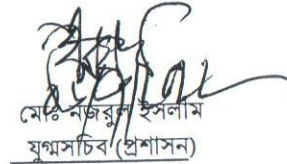 মোঃ নজরুল ইসলাম
যুগ্মসচিব (প্রশাসন)